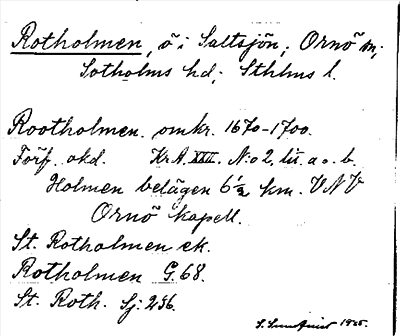 Rotholmen, ö i Saltsjön, Ornö sn,
Sotholms hd, Sthlms l.
Rootholmen. omkr. 1670-1700.
Förf. okd. Kr.A. XXII. N:o 2, lit. a o. b.
Holmen belägen 6 1/2 km. VNV
Ornö kapell.
St. Rotholmen ek.
Rotholmen G.68.
St. Roth. Sj. 256.
S. Lundquist 1925.